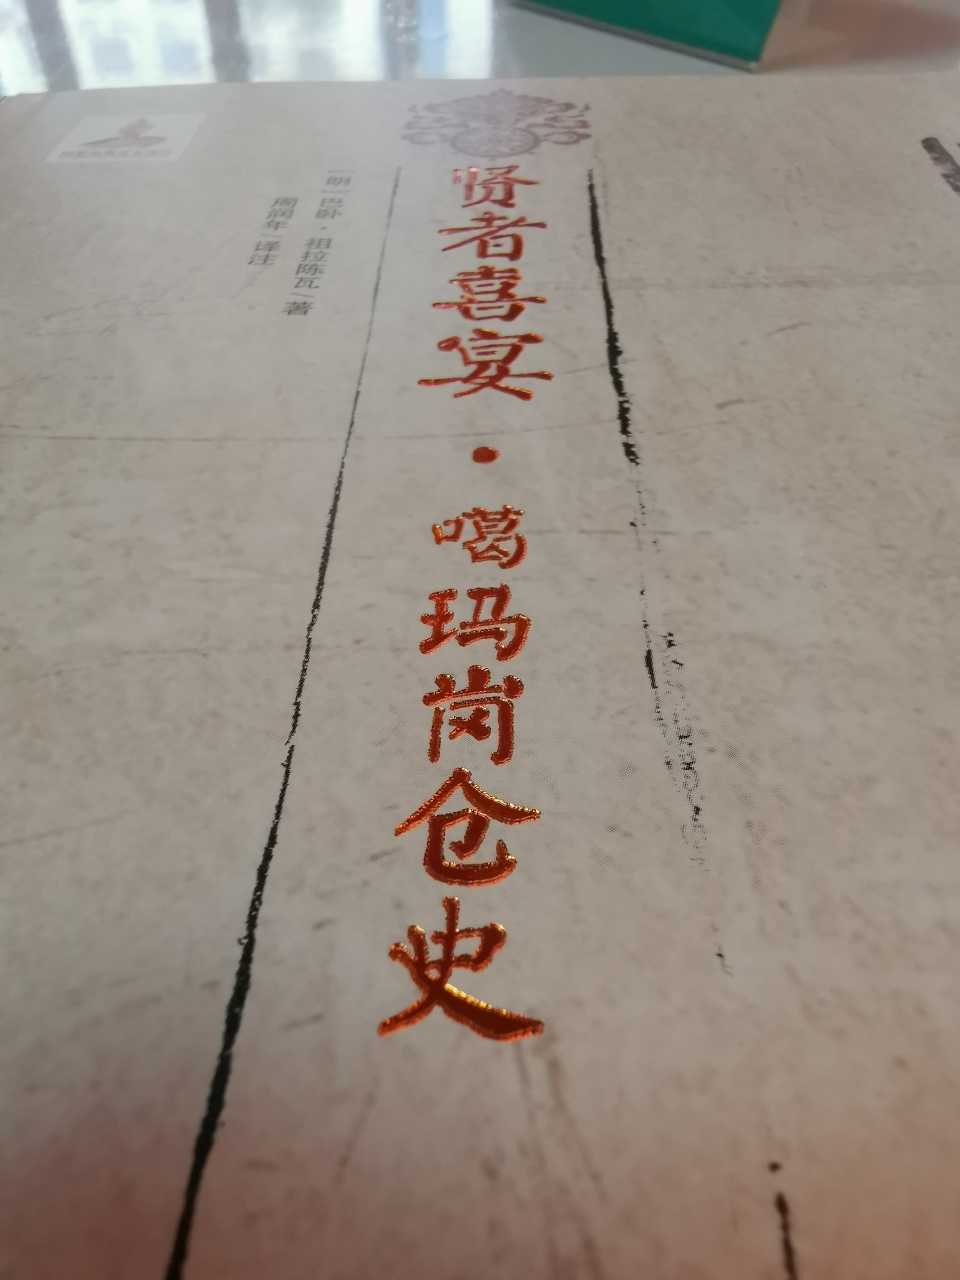 贤者喜宴·噶玛岗仓史
[明]巴卧·祖拉陈瓦/著
周润年/译注